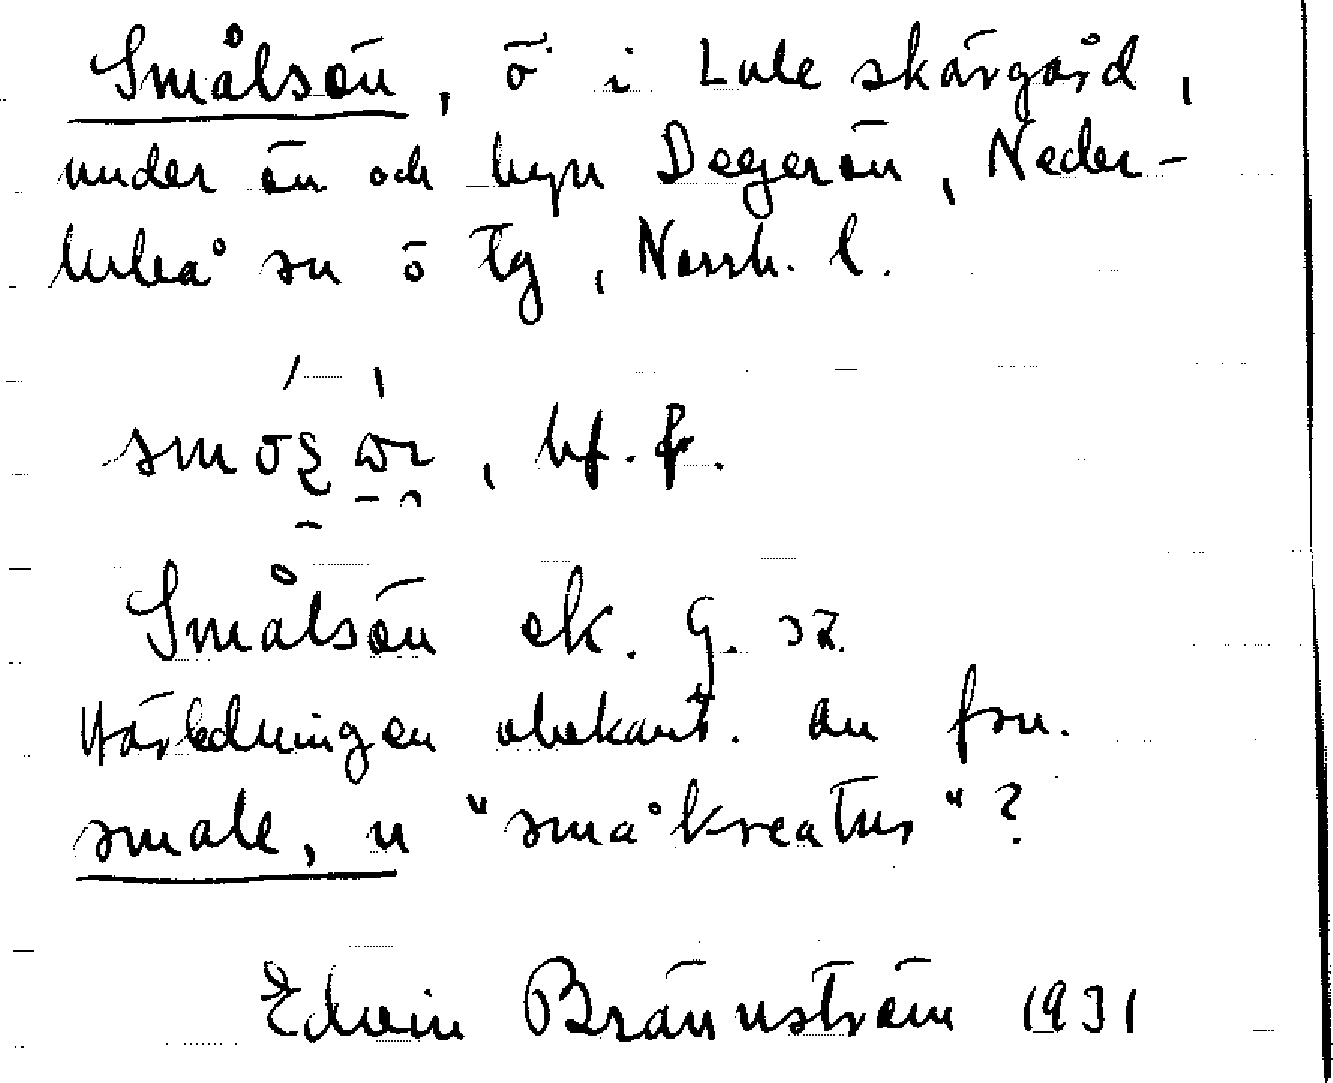 Smålsön, ö i Lule skärgård,
under ön och byn Degerön, Neder-
luleå sn ö tg, Norrb. l.
bf. f.
Smålsön ek. G. 52.
Härledningen obekant. Av fsv.
smale, m "småkreatur"?
Edvin Brännström 1931